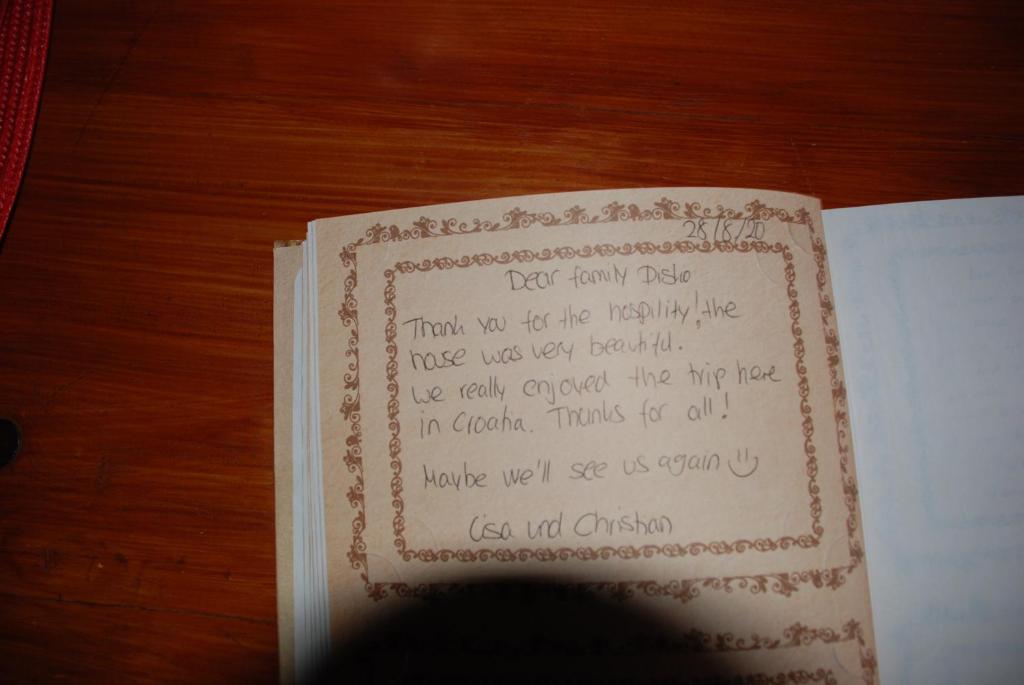 28/8/20
Dear family Disho
Thank you for the hospility! the
house was very beautiful.
we really enjoyed the trip here
in Croatia. Thanks for all!
Maybe we'll see us again
Lisa und Christian